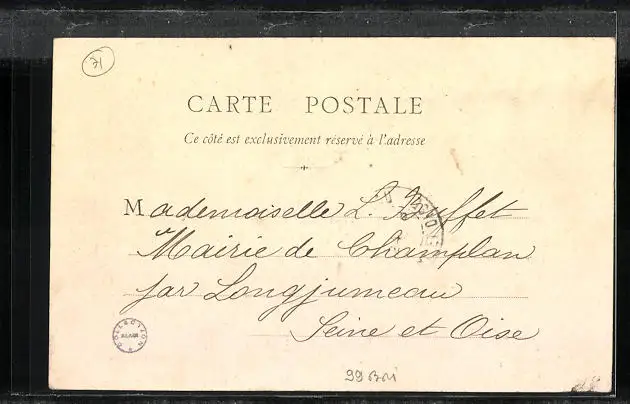 71
CARTE POSTALE
Ce côté est exclusivement réservé à l'adresse
Mademoiselle L. Buffet
Mairie de Champlan
par Longjumeau
Seine et Oise
COLLECTION
99